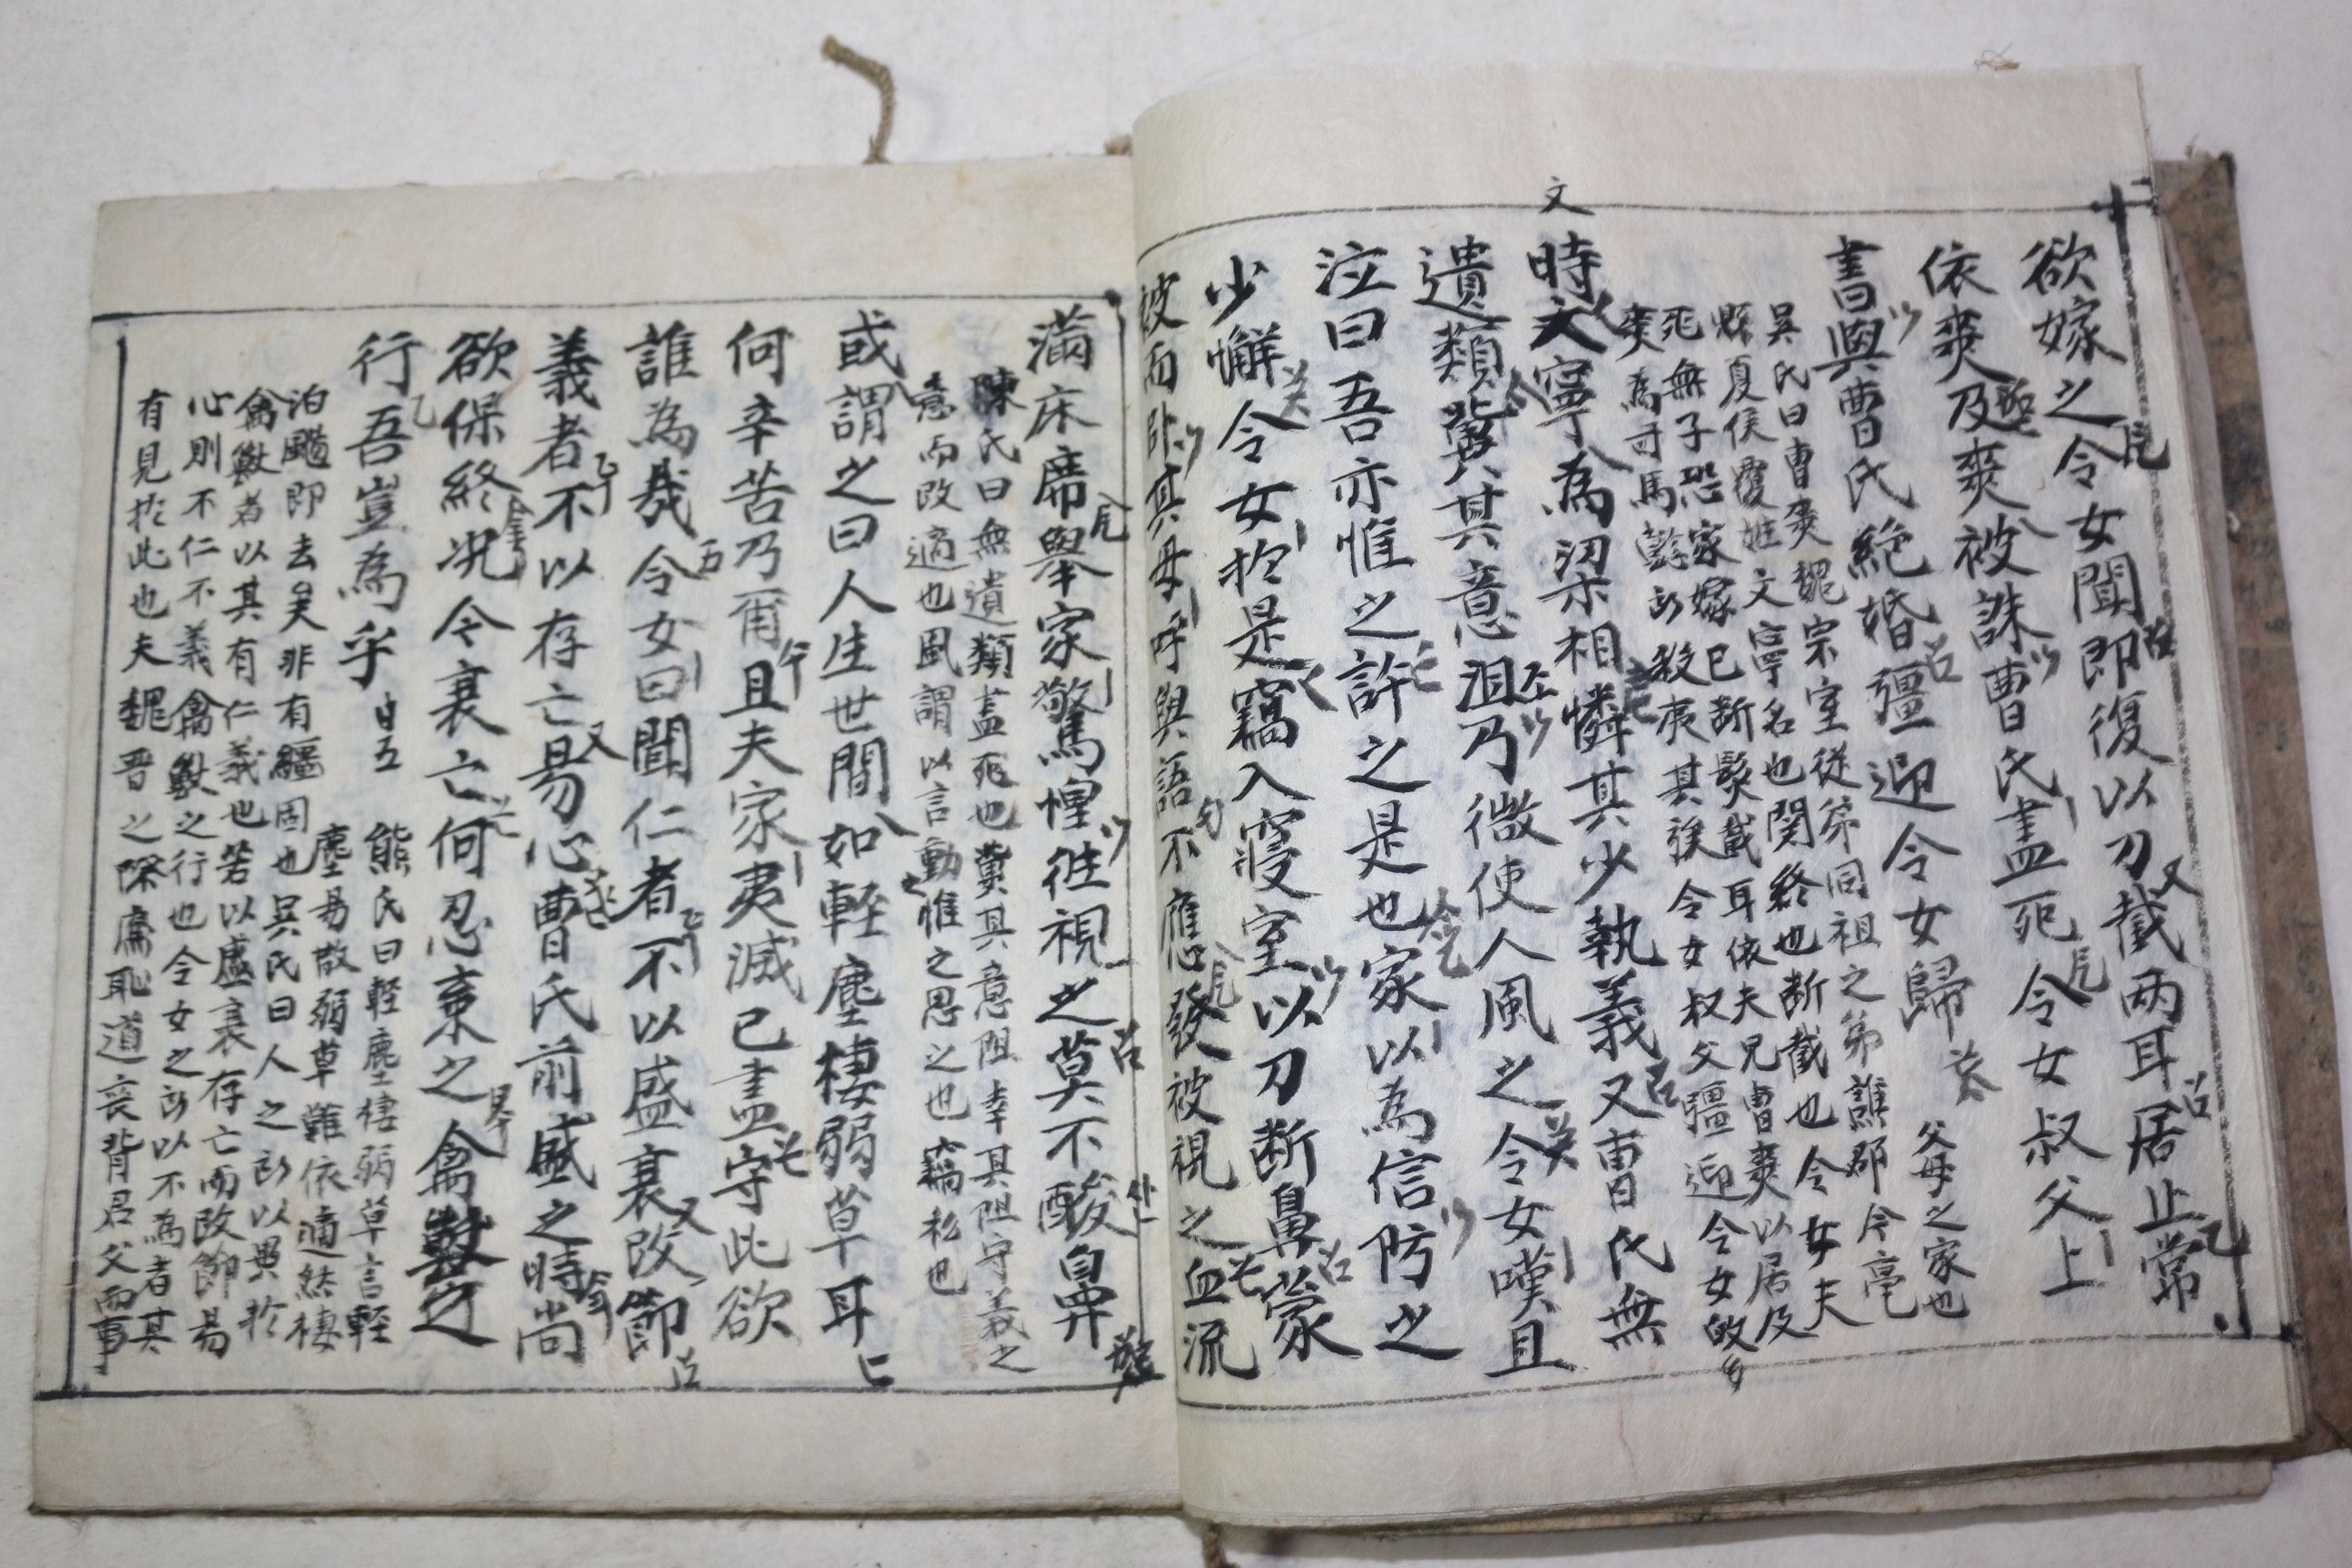 欲嫁之令女聞即復以刀截兩耳居止常
依爽及爽被誅曹氏盡死令女叔父上
書與曹氏絶婚彊迎令女歸 父母之家也
吳氏曰曹爽魏宗室從弟同祖之弟譙郡今亳
縣夏侯覆姓文寧名也関終也断截也令女夫
死無子恐家嫁已斷髮截耳依夫兄曹爽以居及
爽為司馬懿所殺夷其族令女叔父彊迎令女故
文
時文寧為梁相憐其少執義又曹氏無
遺類冀其意沮乃微使人風之令女嘆且
泣曰吾亦惟之許之是也家以為信防之
少懈令女於是竊入寢室以刀断鼻蒙
被而臥其母呼與語不應發被視之血流
滿床席舉家驚惶徃視之莫不酸鼻
陳氏曰無遺類盡死也冀其意阻幸其阻守義之
意而改適也風謂以言動之惟之思之也竊私也
或謂之曰人生世間如輕塵棲弱草耳
何辛苦乃爾且夫家夷滅已盡守此欲
誰為哉令女曰聞仁者不以盛衰改節
義者不以存亡易心曹氏前盛之時尚
欲保終况今衰亡何忍棄之禽獸之
行吾豈為乎
熊氏曰輕塵棲弱草言輕
塵易散弱草難依適然棲
泊飈即去矣非有繮固也吳氏曰人之所以異於
禽獸者以其有仁義也若以盛衰存亡而改節易
心則不仁不義禽獸之行也令女之所以不為者其
有見於此也夫魏晉之際廉恥道丧背君父而事